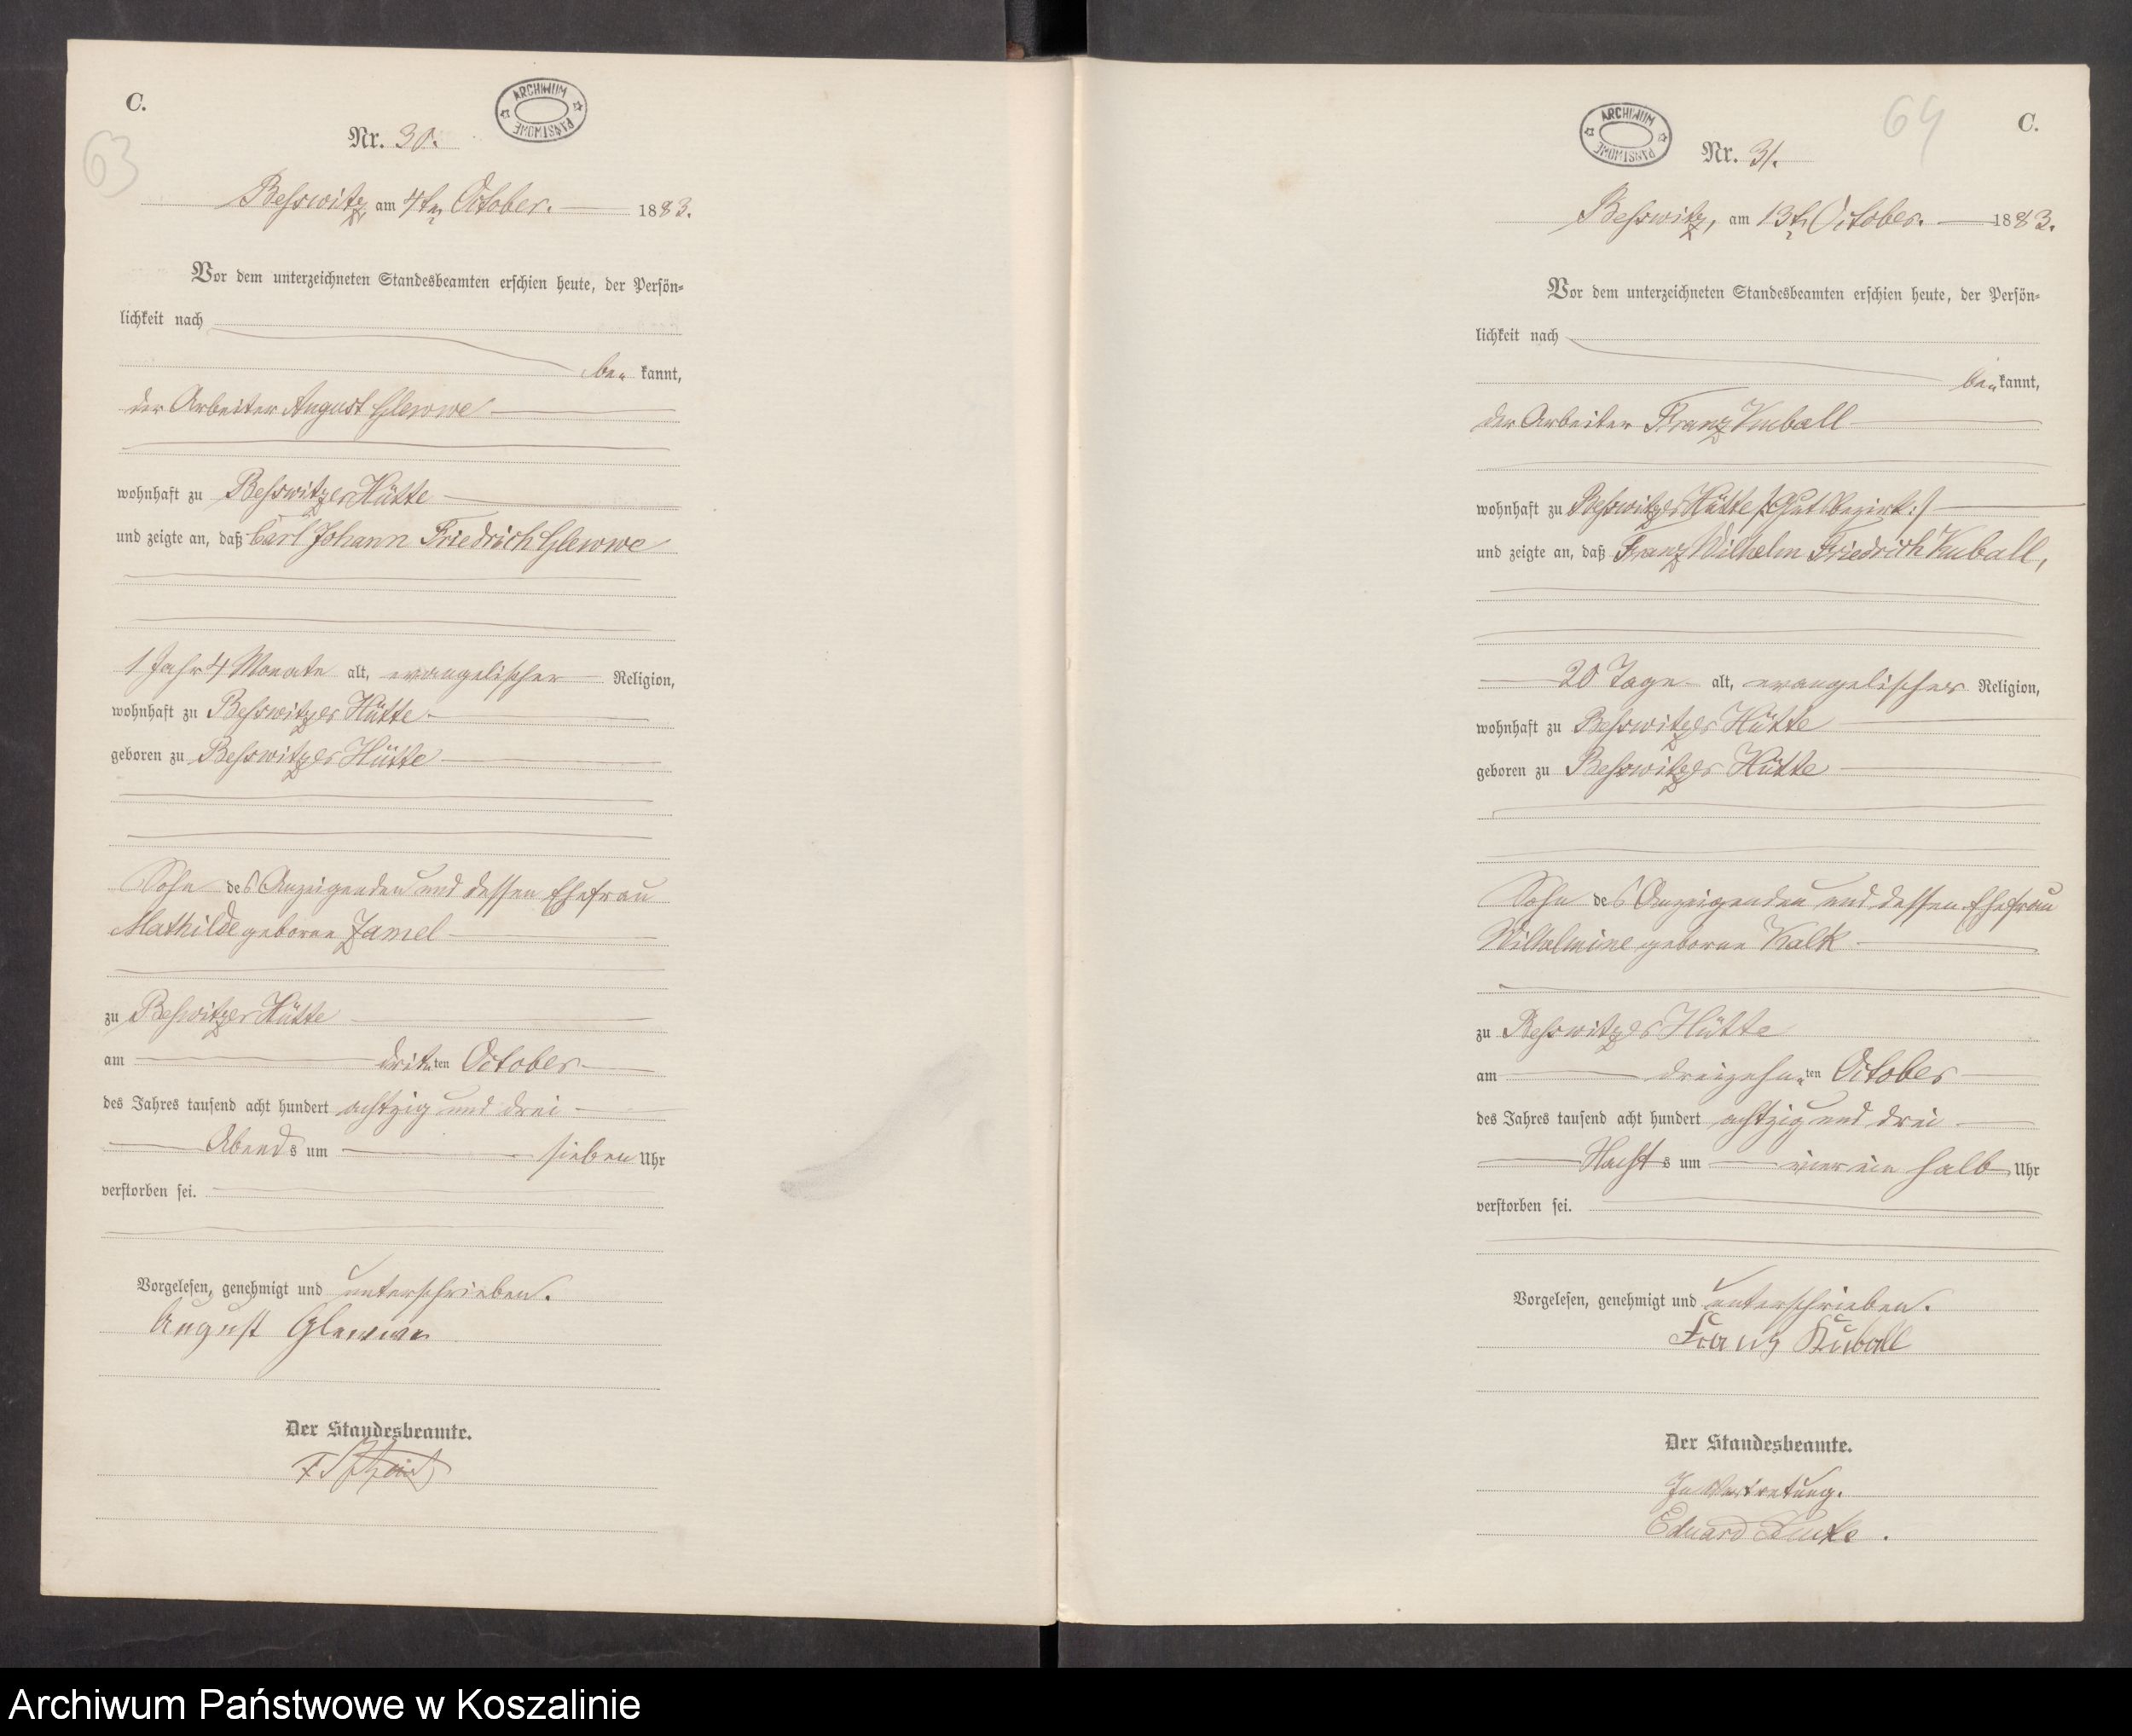 C.
63
ARCHIWUM PAŃSTWOWE
Nr. 30.
Besswitz, am 4ten October. 1883.
Vor dem unterzeichneten Standesbeamten erschien heute, der Persön-
lichkeit nach
be- kannt,
der Arbeiter August Glewwe
wohnhaft zu Besswitzer Hütte
und zeigte an, daß Carl Johann Friedrich Glewwe
1 Jahr 4 Monate alt, evangelischer Religion,
wohnhaft zu Besswitzer Hütte
geboren zu Besswitzer Hütte
Sohn des Anzeigenden und dessen Ehefrau
Mathilde geborne Zamel
zu Besswitzer Hütte
am dritten October
des Jahres tausend acht hundert achtzig und drei
Abends um sieben Uhr
verstorben sei.
Vorgelesen, genehmigt und unterschrieben.
August Glewwe
Der Standesbeamte.
64
C.
ARCHIWUM PAŃSTWOWE
Nr. 31.
Besswitz, am 13t October. 1883.
Vor dem unterzeichneten Standesbeamten erschien heute, der Persön-
lichkeit nach
be- kannt,
der Arbeiter Franz Kuball
wohnhaft zu Besswitzer Hütte /:Gutsbezirk:/
und zeigte an, daß Franz Wilhelm Friedrich Kuball,
20 Tage alt, evangelischer Religion,
wohnhaft zu Besswitzer Hütte
geboren zu Besswitzer Hütte
Sohn des Anzeigenden und dessen Ehefrau
Wilhelmine geborne Kalk
zu Besswitzer Hütte
am dreizehnten October
des Jahres tausend acht hundert achtzig und drei
Nachts um ein halb Uhr
verstorben sei.
Vorgelesen, genehmigt und unterschrieben.
Franz Kuball
Der Standesbeamte.
In Vertretung.
Eduard
Archiwum Państwowe w Koszalinie